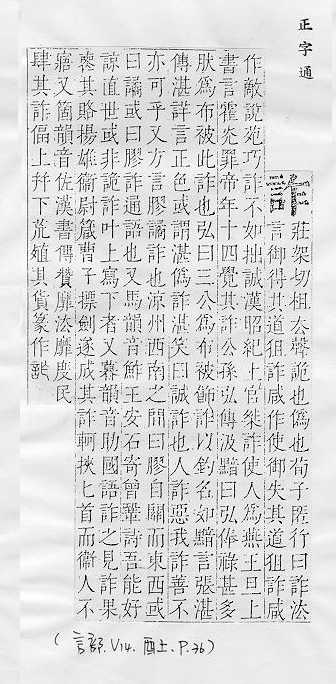 正字通
莊架切柤去聲詭也僞也荀子陞行曰詐
言御得其道狙詐咸作使御失其道狙詐咸
作敵說苑巧詐不如拙誠漢昭紀上官桀詐使人爲燕王旦上
書言霍光罪帝年十四覺其詐公孫弘傳汲黯曰弘俸祿甚多
肰爲布被此詐也弘曰三公爲布被飾詐以釣名如黯言張湛
傳湛詳言正色或謂湛僞詐湛笑曰誠詐也人詐惡我詐善不
亦可乎又方言膠譎詐也涼州西南之間曰膠自關而東西或
曰譎或曰膠詐通語也又馬韻音鮓王安石寄曾鞏詩吾能好
諒直世或非詭詐叶上寫下者又暮韻音助國語詐之見詐果
喪其賂揚雄衞尉箴曹子摽劍遂成其詐軻挾匕首而衞人不
寤又箇韻音佐漢書傳贊靡法靡度民
肆其詐偪上幷下荒殖其貨篆作
(言部.V14.酉上.P.76)